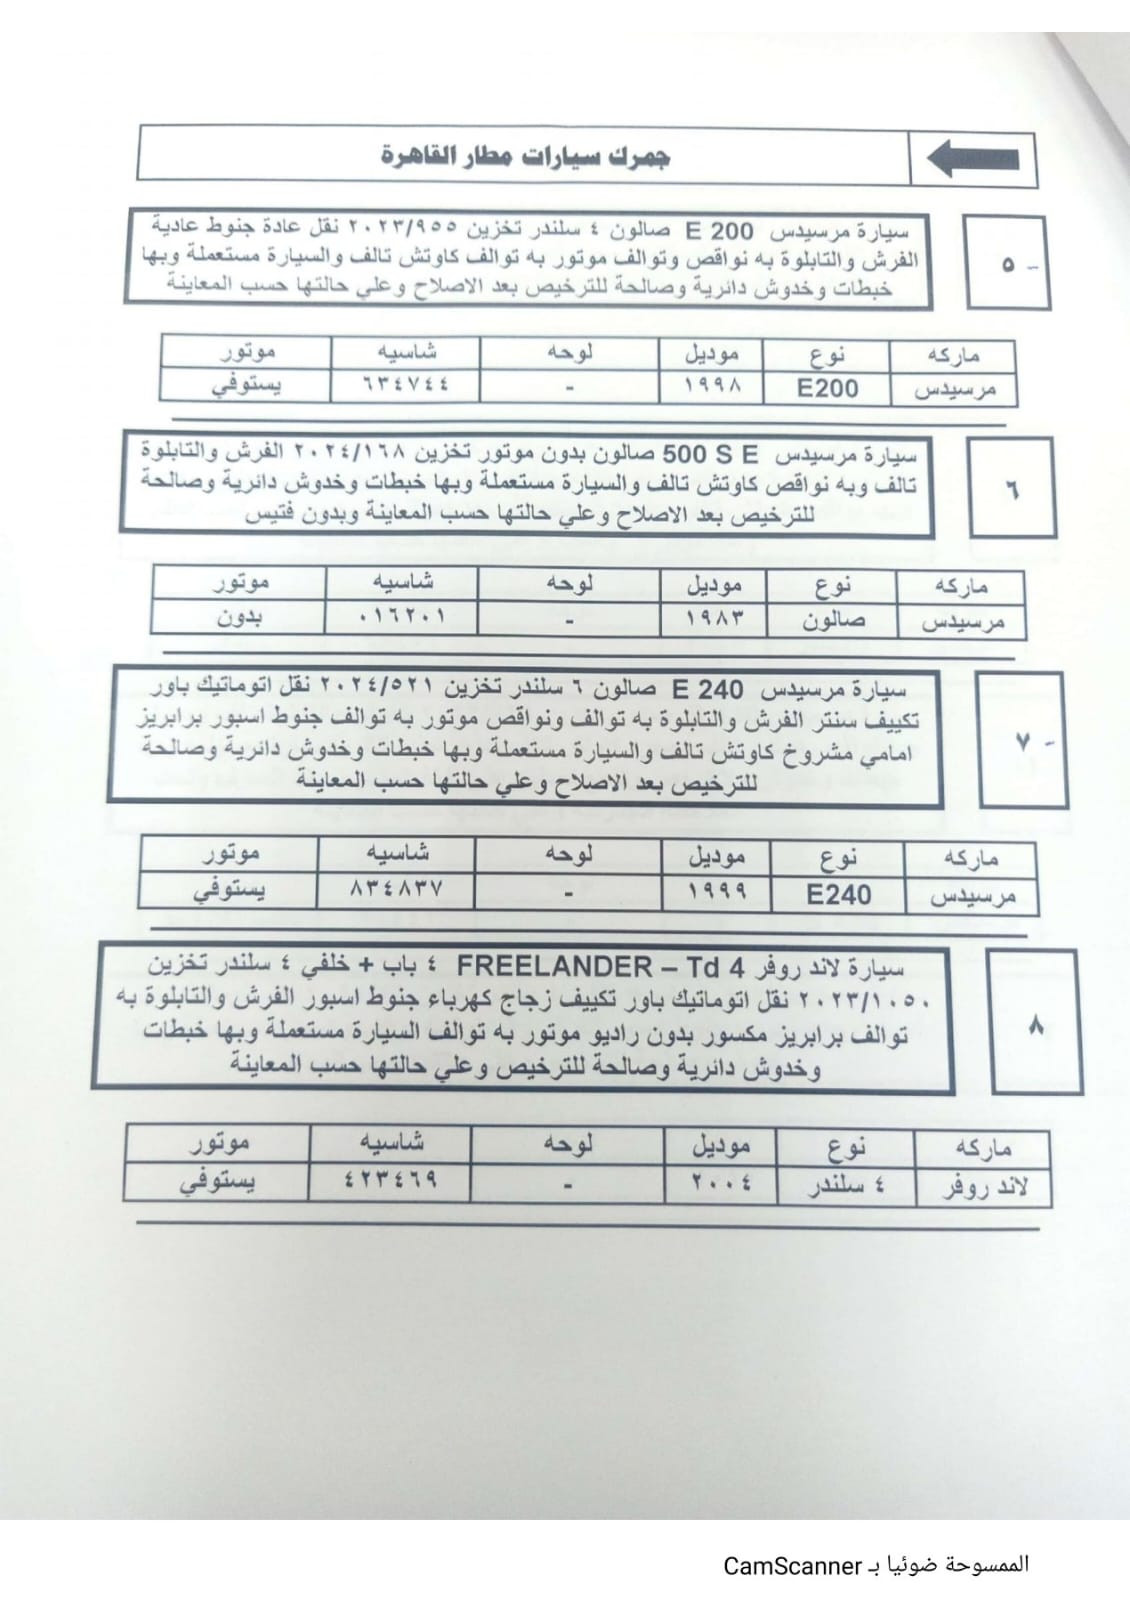 جمرك سيارات مطار القاهرة
٥ -
سيارة مرسيدس E 200 صالون ٤ سلندر تخزين ٢٠٢٣/٩٥٥ نقل عادة جنوط عادية
الفرش والتابلوة به نواقص وتوالف موتور به توالف كاوتش تالف والسيارة مستعملة وبها
خبطات وخدوش دائرية وصالحة للترخيص بعد الاصلاح وعلي حالتها حسب المعاينة
ماركه نوع موديل لوحه شاسيه موتور
مرسيدس E200 ١٩٩٨ - ٦٣٤٧٤٤ يستوفي
٦
سيارة مرسيدس 500 S E صالون بدون موتور تخزين ٢٠٢٤/١٦٨ الفرش والتابلوة
تالف وبه نواقص كاوتش تالف والسيارة مستعملة وبها خبطات وخدوش دائرية وصالحة
للترخيص بعد الاصلاح وعلي حالتها حسب المعاينة وبدون فتيس
ماركه نوع موديل لوحه شاسيه موتور
مرسيدس صالون ١٩٨٣ - ٠١٦٢٠١ بدون
٧ -
سيارة مرسيدس E 240 صالون ٦ سلندر تخزين ٢٠٢٤/٥٢١ نقل اتوماتيك باور
تكييف سنتر الفرش والتابلوة به توالف ونواقص موتور به توالف جنوط اسبور برابريز
امامي مشروخ كاوتش تالف والسيارة مستعملة وبها خبطات وخدوش دائرية وصالحة
للترخيص بعد الاصلاح وعلي حالتها حسب المعاينة
ماركه نوع موديل لوحه شاسيه موتور
مرسيدس E240 ١٩٩٩ - ٨٣٤٨٣٧ يستوفي
٨
سيارة لاند روفر FREELANDER – Td 4 ٤ باب + خلفي ٤ سلندر تخزين
٢٠٢٣/١٠٥٠ نقل اتوماتيك باور تكييف زجاج كهرباء جنوط اسبور الفرش والتابلوة به
توالف برابريز مكسور بدون راديو موتور به توالف السيارة مستعملة وبها خبطات
وخدوش دائرية وصالحة للترخيص وعلي حالتها حسب المعاينة
ماركه نوع موديل لوحه شاسيه موتور
لاند روفر ٤ سلندر ٢٠٠٤ - ٤٢٣٤٦٩ يستوفي
الممسوحة ضوئيا بـ CamScanner